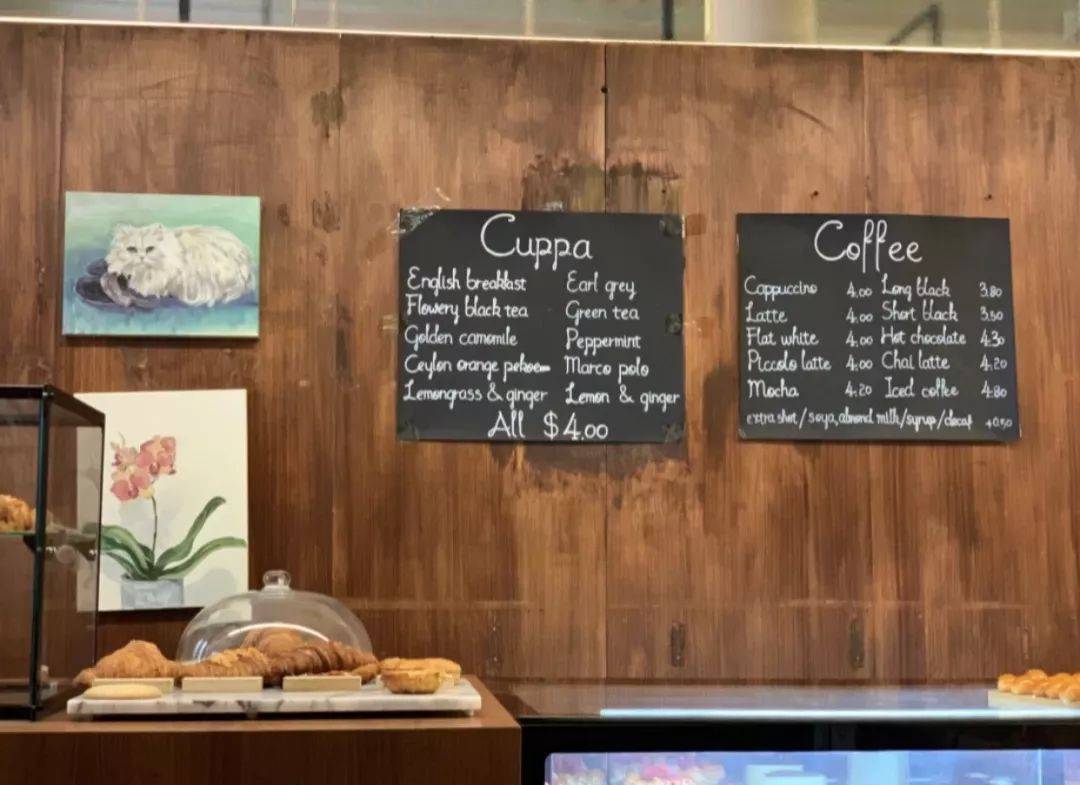 Cuppa
English breakfast Earl grey
Flowery black tea Green tea
Golden camomile Peppermint
Ceylon orange pekoe Marco polo
Lemongrass & ginger Lemon & ginger
All $4.00
Coffee
Cappuccino 4.00 Long black 3.80
Latte 4.00 Short black 3.50
Flat white 4.00 Hot chocolate 4.30
Piccolo latte 4.00 Chai latte 4.20
Mocha 4.20 Iced coffee 4.80
extra shot/soya, almond milk/syrup/decaf +0.50